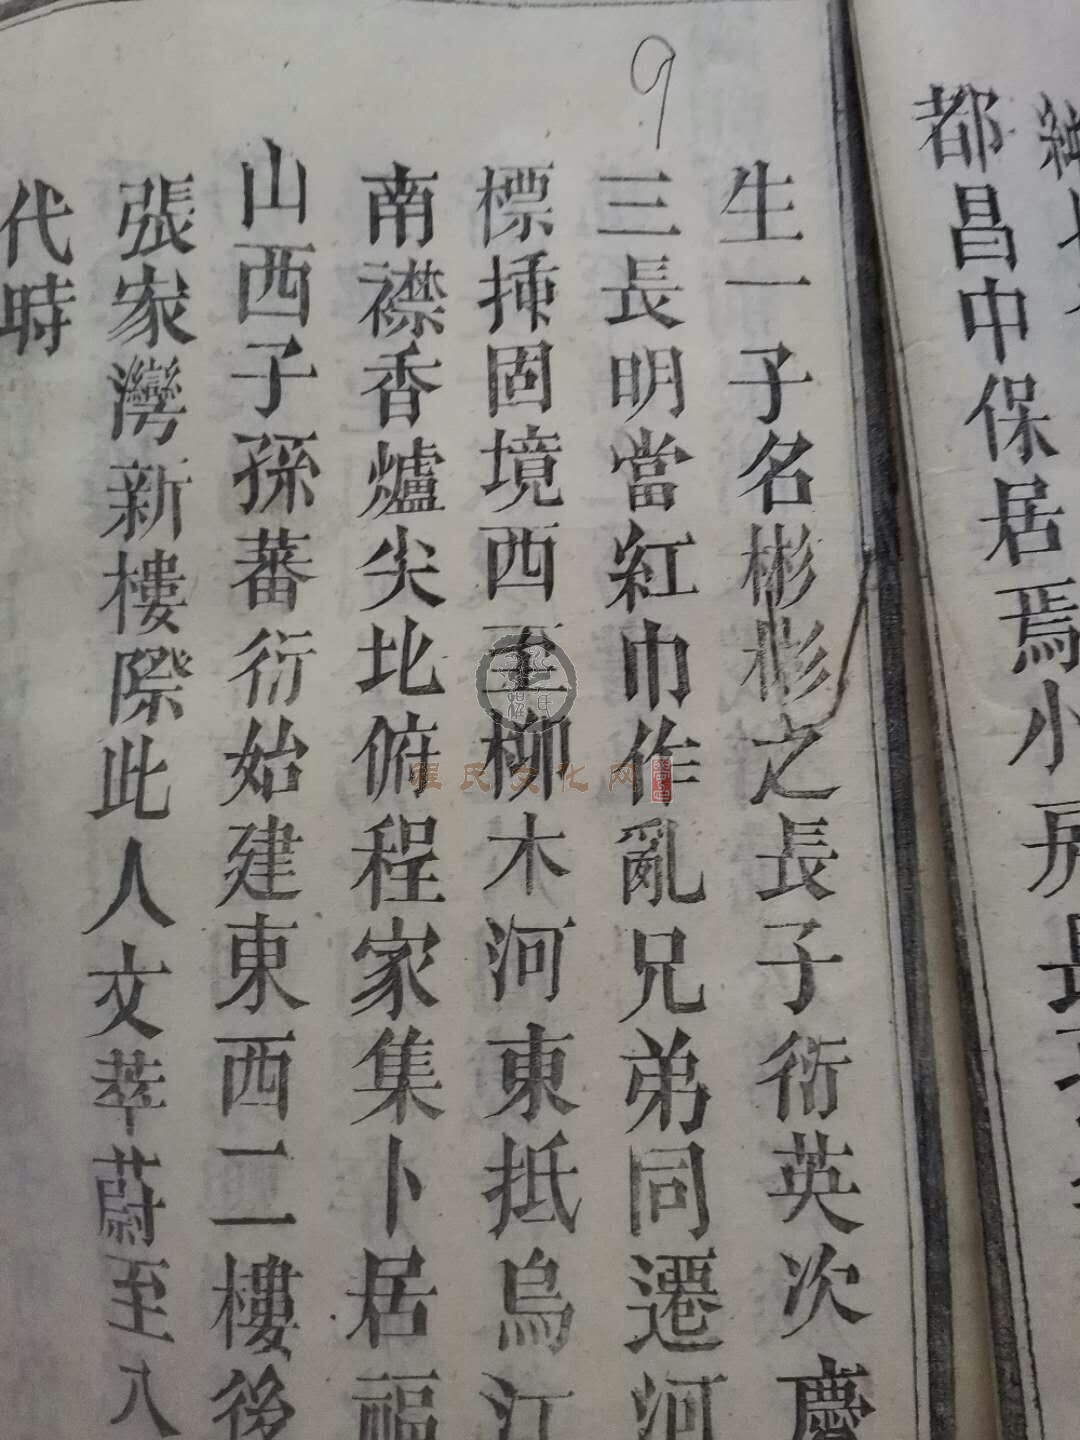 都昌中保居焉小房長
9
生一子名彬彬之長子衍英次慶
三長明當紅巾作亂兄弟同遷河
標揷固境西至柳木河東抵烏江
南襟香爐尖北俯程家集卜居福
山西子孫蕃衍始建東西二樓後
張家灣新樓際此人文萃蔚至八
代時
程氏文化网